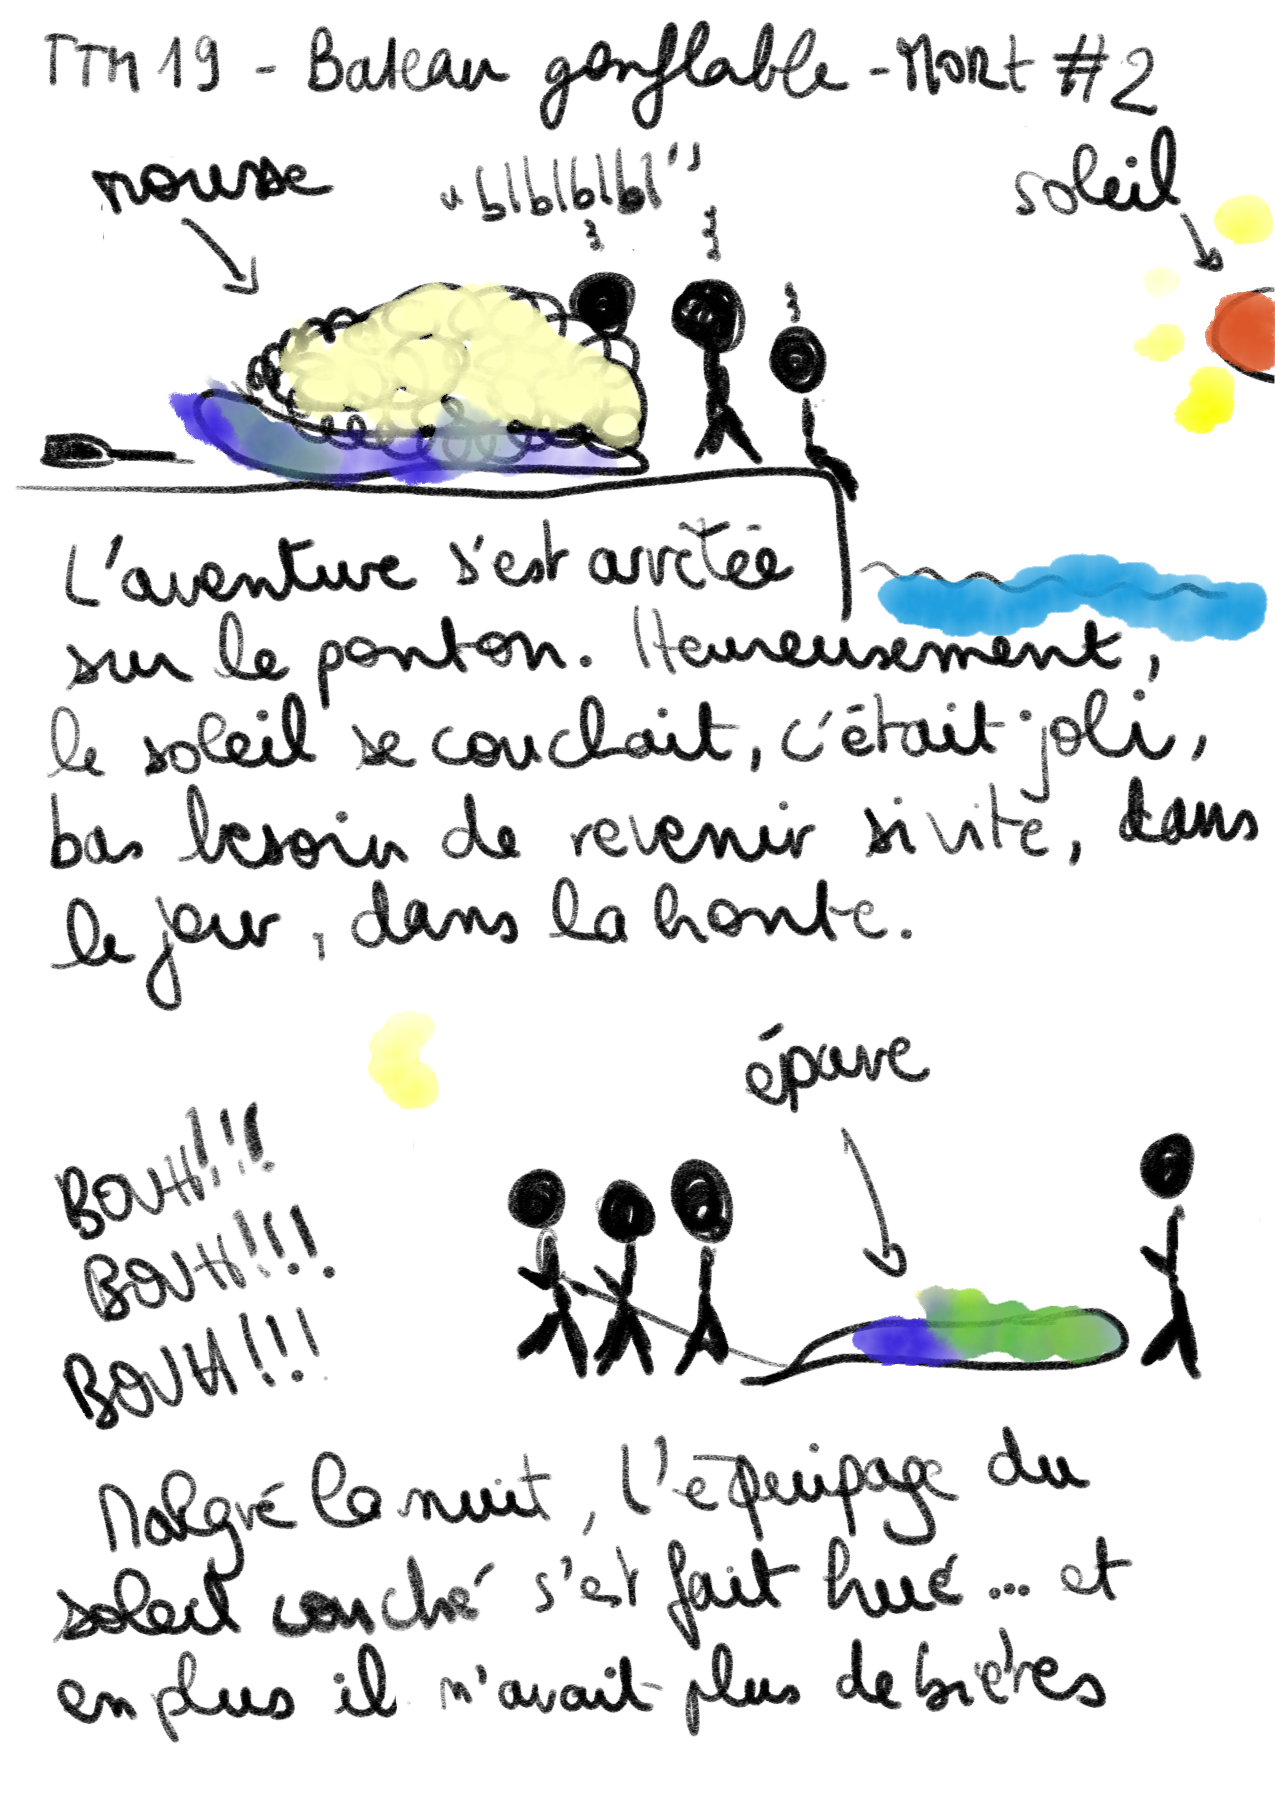 TTM 19 - Bateau gonflable - Mort #2
mousse
"blblblbl"
soleil
L'aventure s'est arrêtée
sur le ponton. Heureusement,
le soleil se couchait, c'était joli,
bas besoin de revenir si vite, dans
le jour, dans la honte.
épave
BOUH!!!
BOUH!!!
BOUH!!!
Malgré la nuit, l'équipage du
soleil couché s'est fait hué... et
en plus il n'avait plus de bières